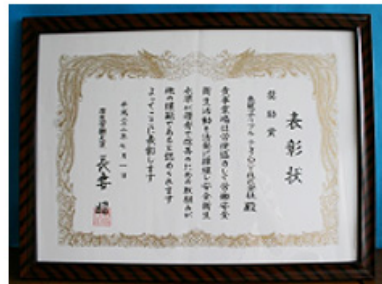 表彰状
奨励賞
殿
貴事業場は労使協力して労働安全
衛生活動を活発に推進し安全衛生
水準が優秀で改善のための取組みが
他の模範であると認められます
よってここに表彰します
平成二十二年七月一日
厚生労働大臣 長妻 昭